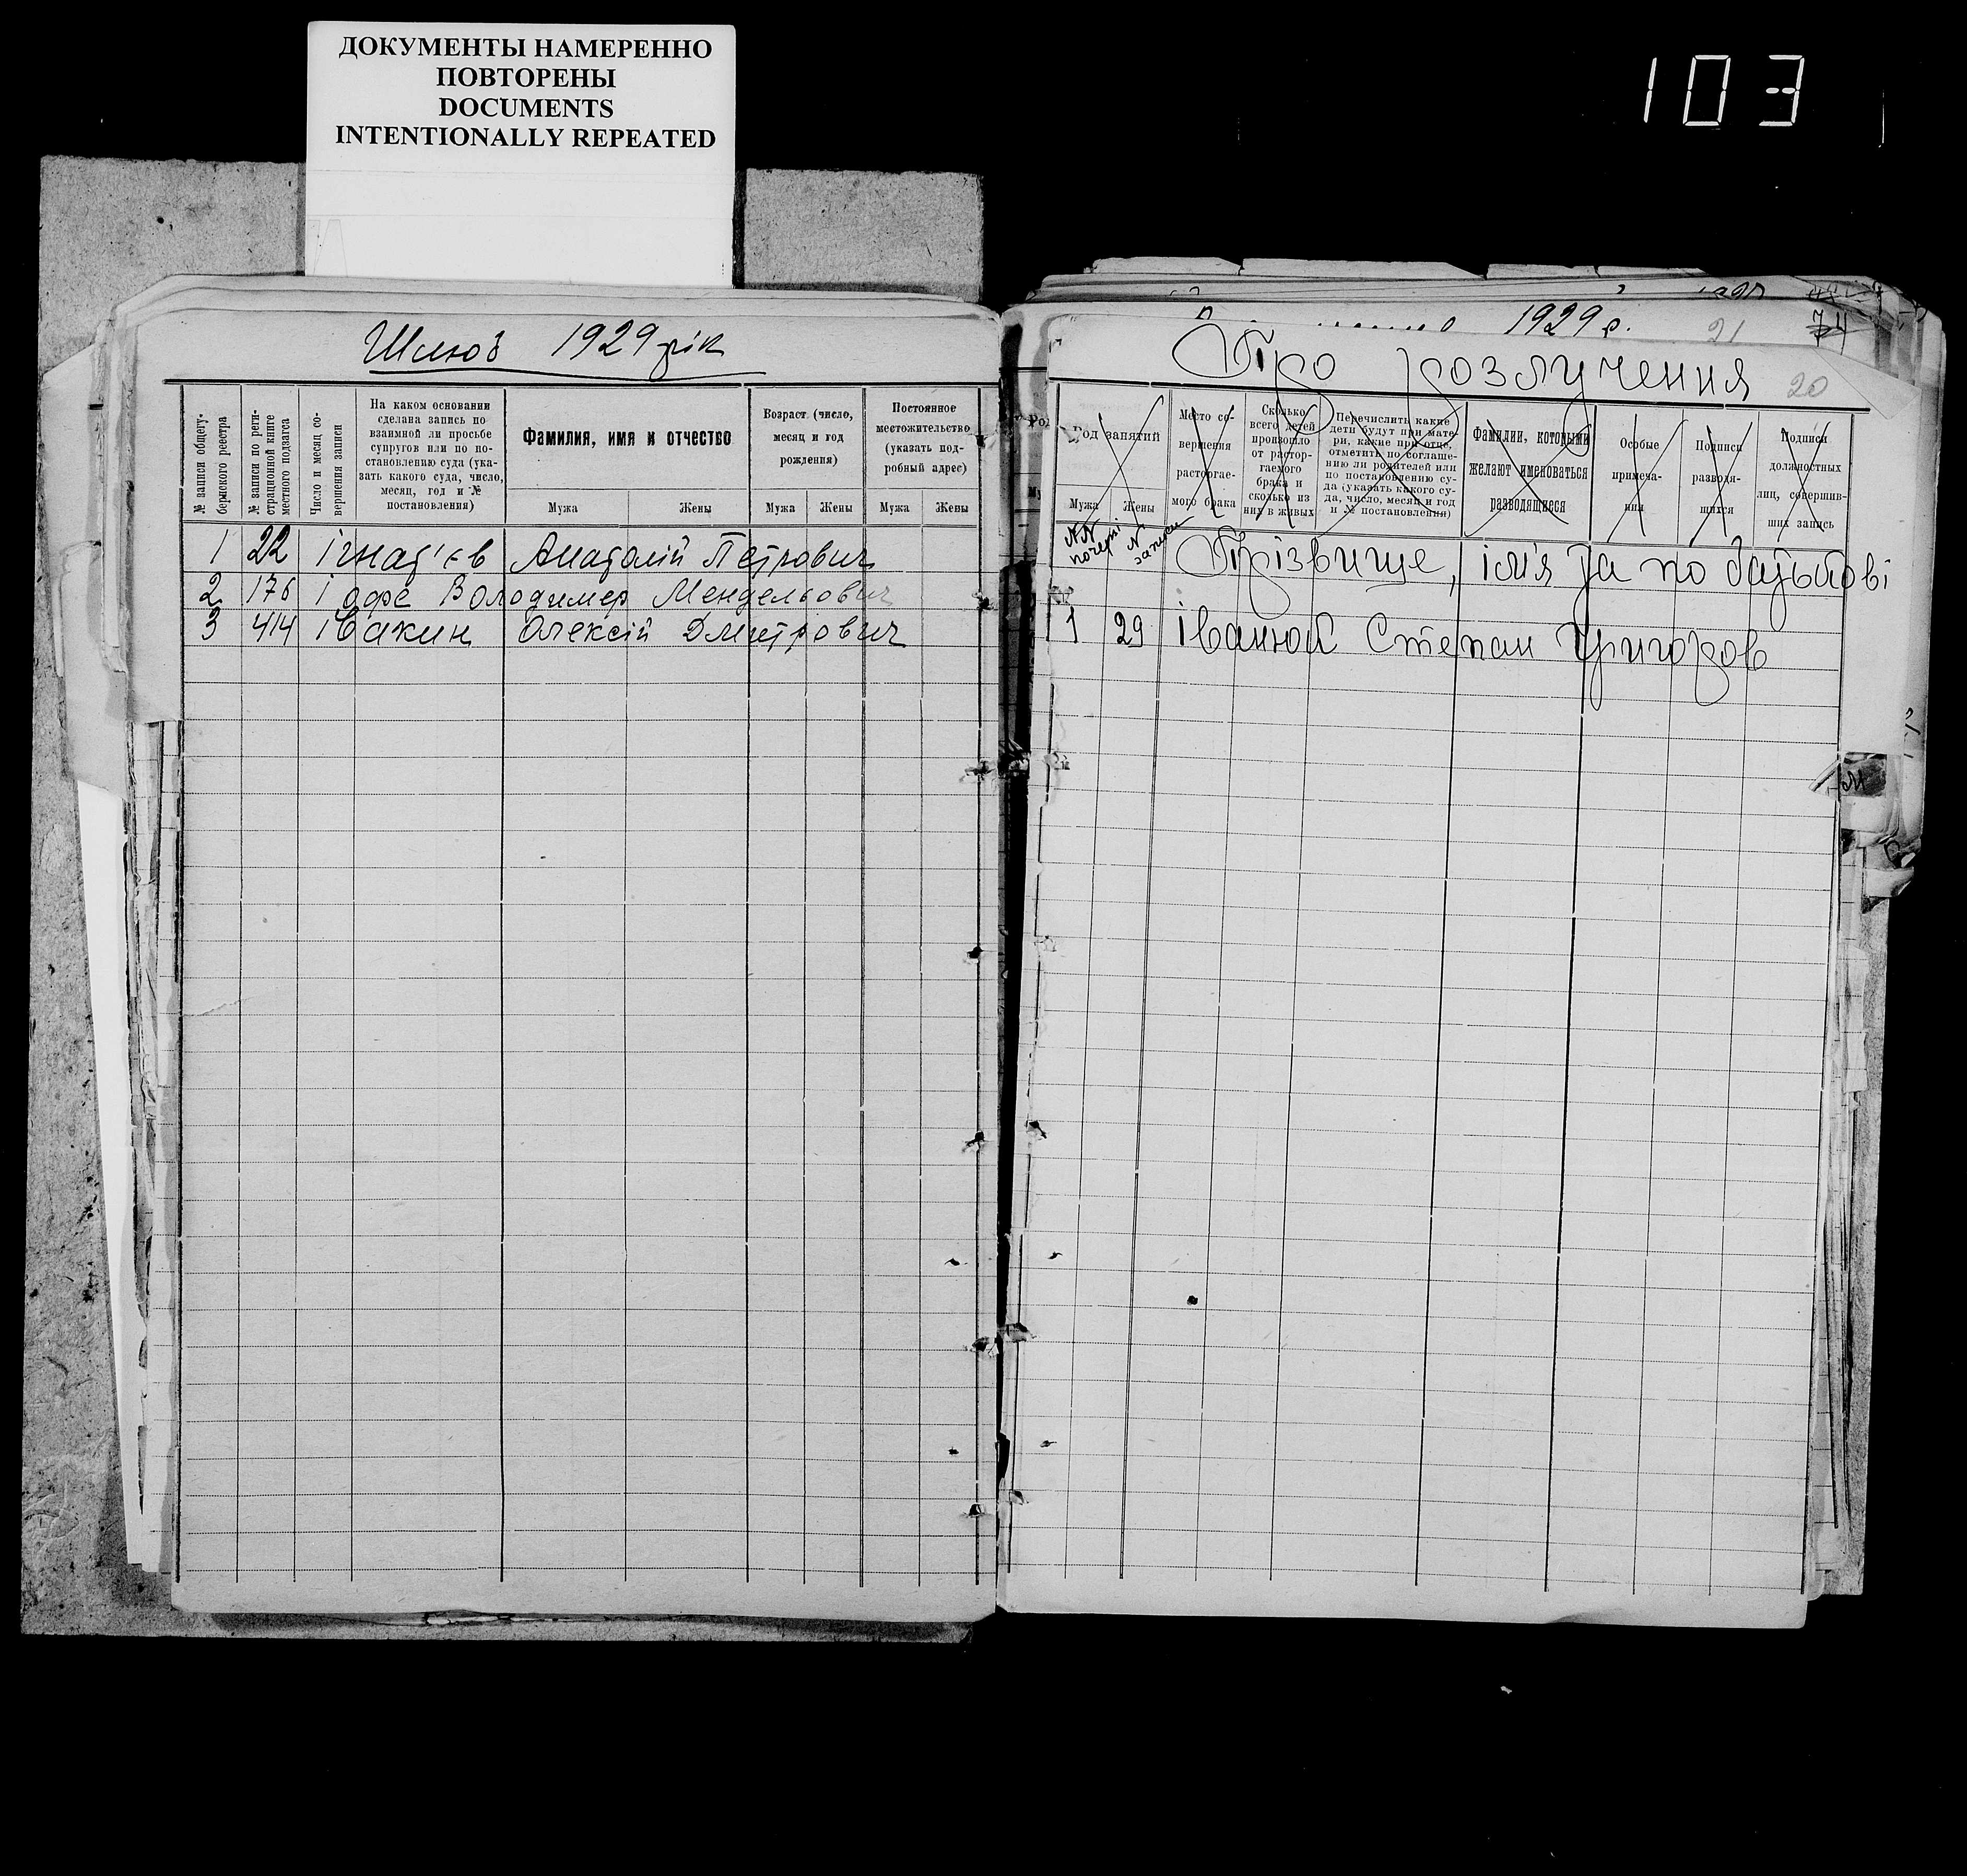 ДОКУМЕНТЫ НАМЕРЕННО
ПОВТОРЕНЫ
DOCUMENTS
INTENTIONALLY REPEATED
103
Шлюб 1929 рік
№ записи общегу-
бернского реестра
№ записи по реги-
страционной книге
местного подзагса
Число и месяц со-
вершения записи
На каком основании
сделана запись по
взаимной ли просьбе
супругов или по по-
становлению суда (ука-
зать какого суда, число,
месяц, год и №
постановления)
Фамилия, имя и отчество
Мужа Жены
Возраст (число,
месяц и год
рождения)
Мужа Жены
Постоянное
местожительство
(указать под-
робный адрес)
Мужа Жены
1 22 Ігнат'єв Анатолій Петрович
2 176 Іофе Володимер Мендельович
3 414 Івакин Олексій Дмитрович
1929 р. 21 74
Про розлучення 20
Род занятий
Мужа Жены
Место со-
вершения
расторгае-
мого брака
Сколько
всего детей
произошло
от растор-
гаемого
брака и
сколько из
них в живых
Перечислить какие
дети будут при мате-
ри, какие при отце,
отметить по соглаше-
нию ли родителей или
по постановлению су-
да (указать какого су-
да, число, месяц и год
и № постановления)
Фамилии, которыми
желают именоваться
разводящиеся
Особые
примеча-
ния
Подписи
разводя-
щихся
Подписи
должностных
лиц, совершив-
ших запись
№№ почергі № записи Прізвище, ім'я та по батькові
1 29 Іванюк Степан Григоров